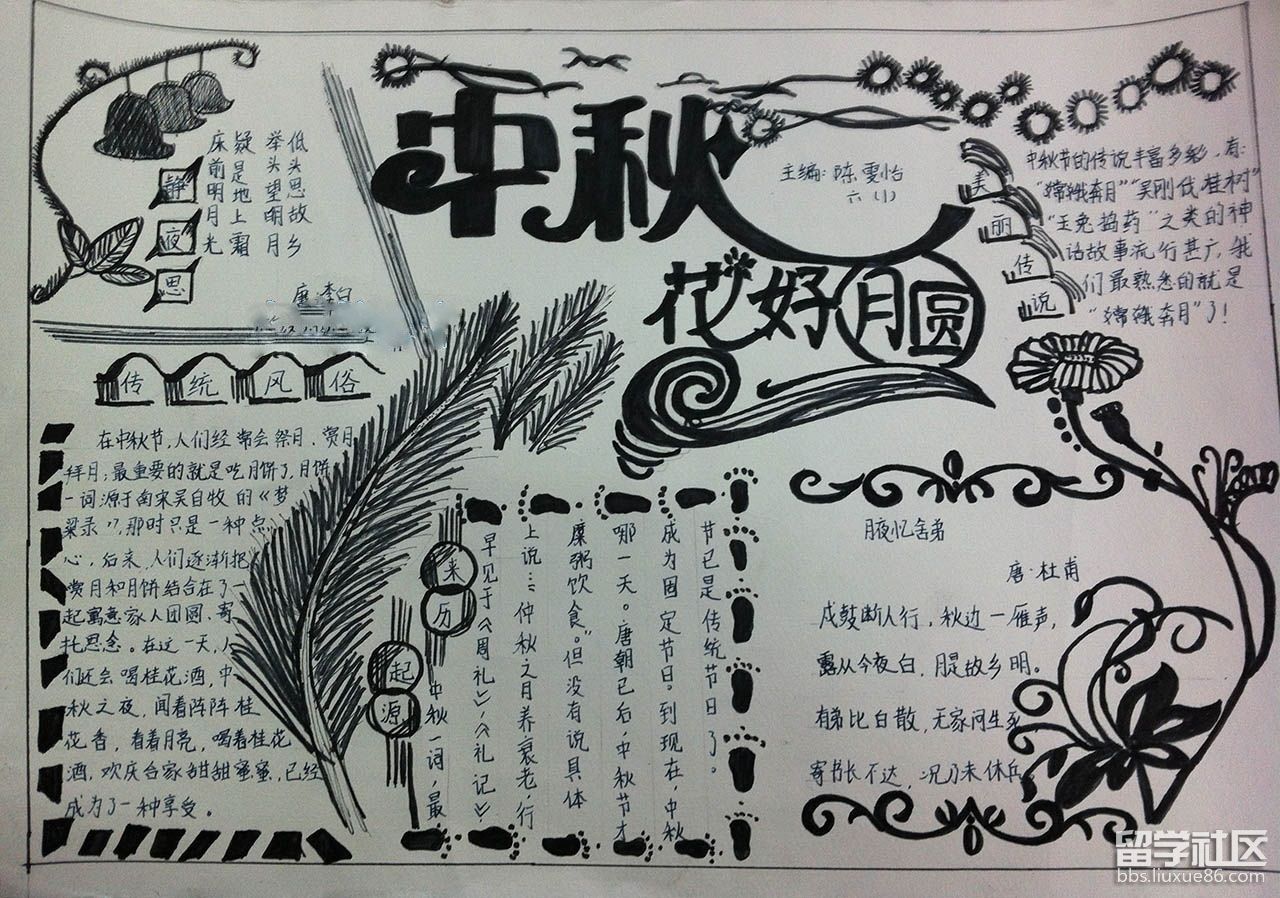 中秋
花好月圆
主编:陈雯怡
六(1)
静夜思
床前明月光
疑是地上霜
举头望明月
低头思故乡
唐·李白
美丽传说
中秋节的传说丰富多彩，有：
“嫦娥奔月”“吴刚伐桂树”
“玉兔捣药”之类的神
话故事流行甚广，我
们最熟悉的就是
“嫦娥奔月”了！
传统风俗
在中秋节，人们经常会祭月、赏月
拜月；最重要的就是吃月饼了，月饼
一词源于南宋吴自牧的《梦
梁录》，那时只是一种点
心，后来，人们逐渐把
赏月和月饼结合在了一
起寓意家人团圆、寄
托思念。在这一天，人
们还会喝桂花酒，中
秋之夜，闻着阵阵桂
花香，看着月亮，喝着桂花
酒，欢庆合家甜甜蜜蜜，已经
成为了一种享受。
来历
起源
中秋一词，最
早见于《周礼》，《礼记》
上说：“仲秋之月养衰老，行
糜粥饮食。”但没有说具体
哪一天。唐朝已后，中秋节才
成为固定节日。到现在，中秋
节已是传统节日了。
月夜忆舍弟
唐·杜甫
戍鼓断人行，秋边一雁声，
露从今夜白，月是故乡明。
有弟比白散，无家问生死
寄书长不达，况乃未休兵。
留学社区
bbs.liuxue86.com